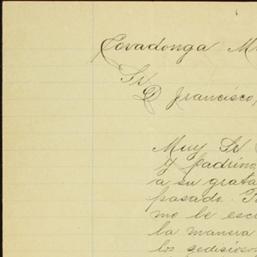 Covadonga M
Sr
D Francisco,
Muy Sr
y padrino
a su grata
pasado.
me he esc
la manera
los